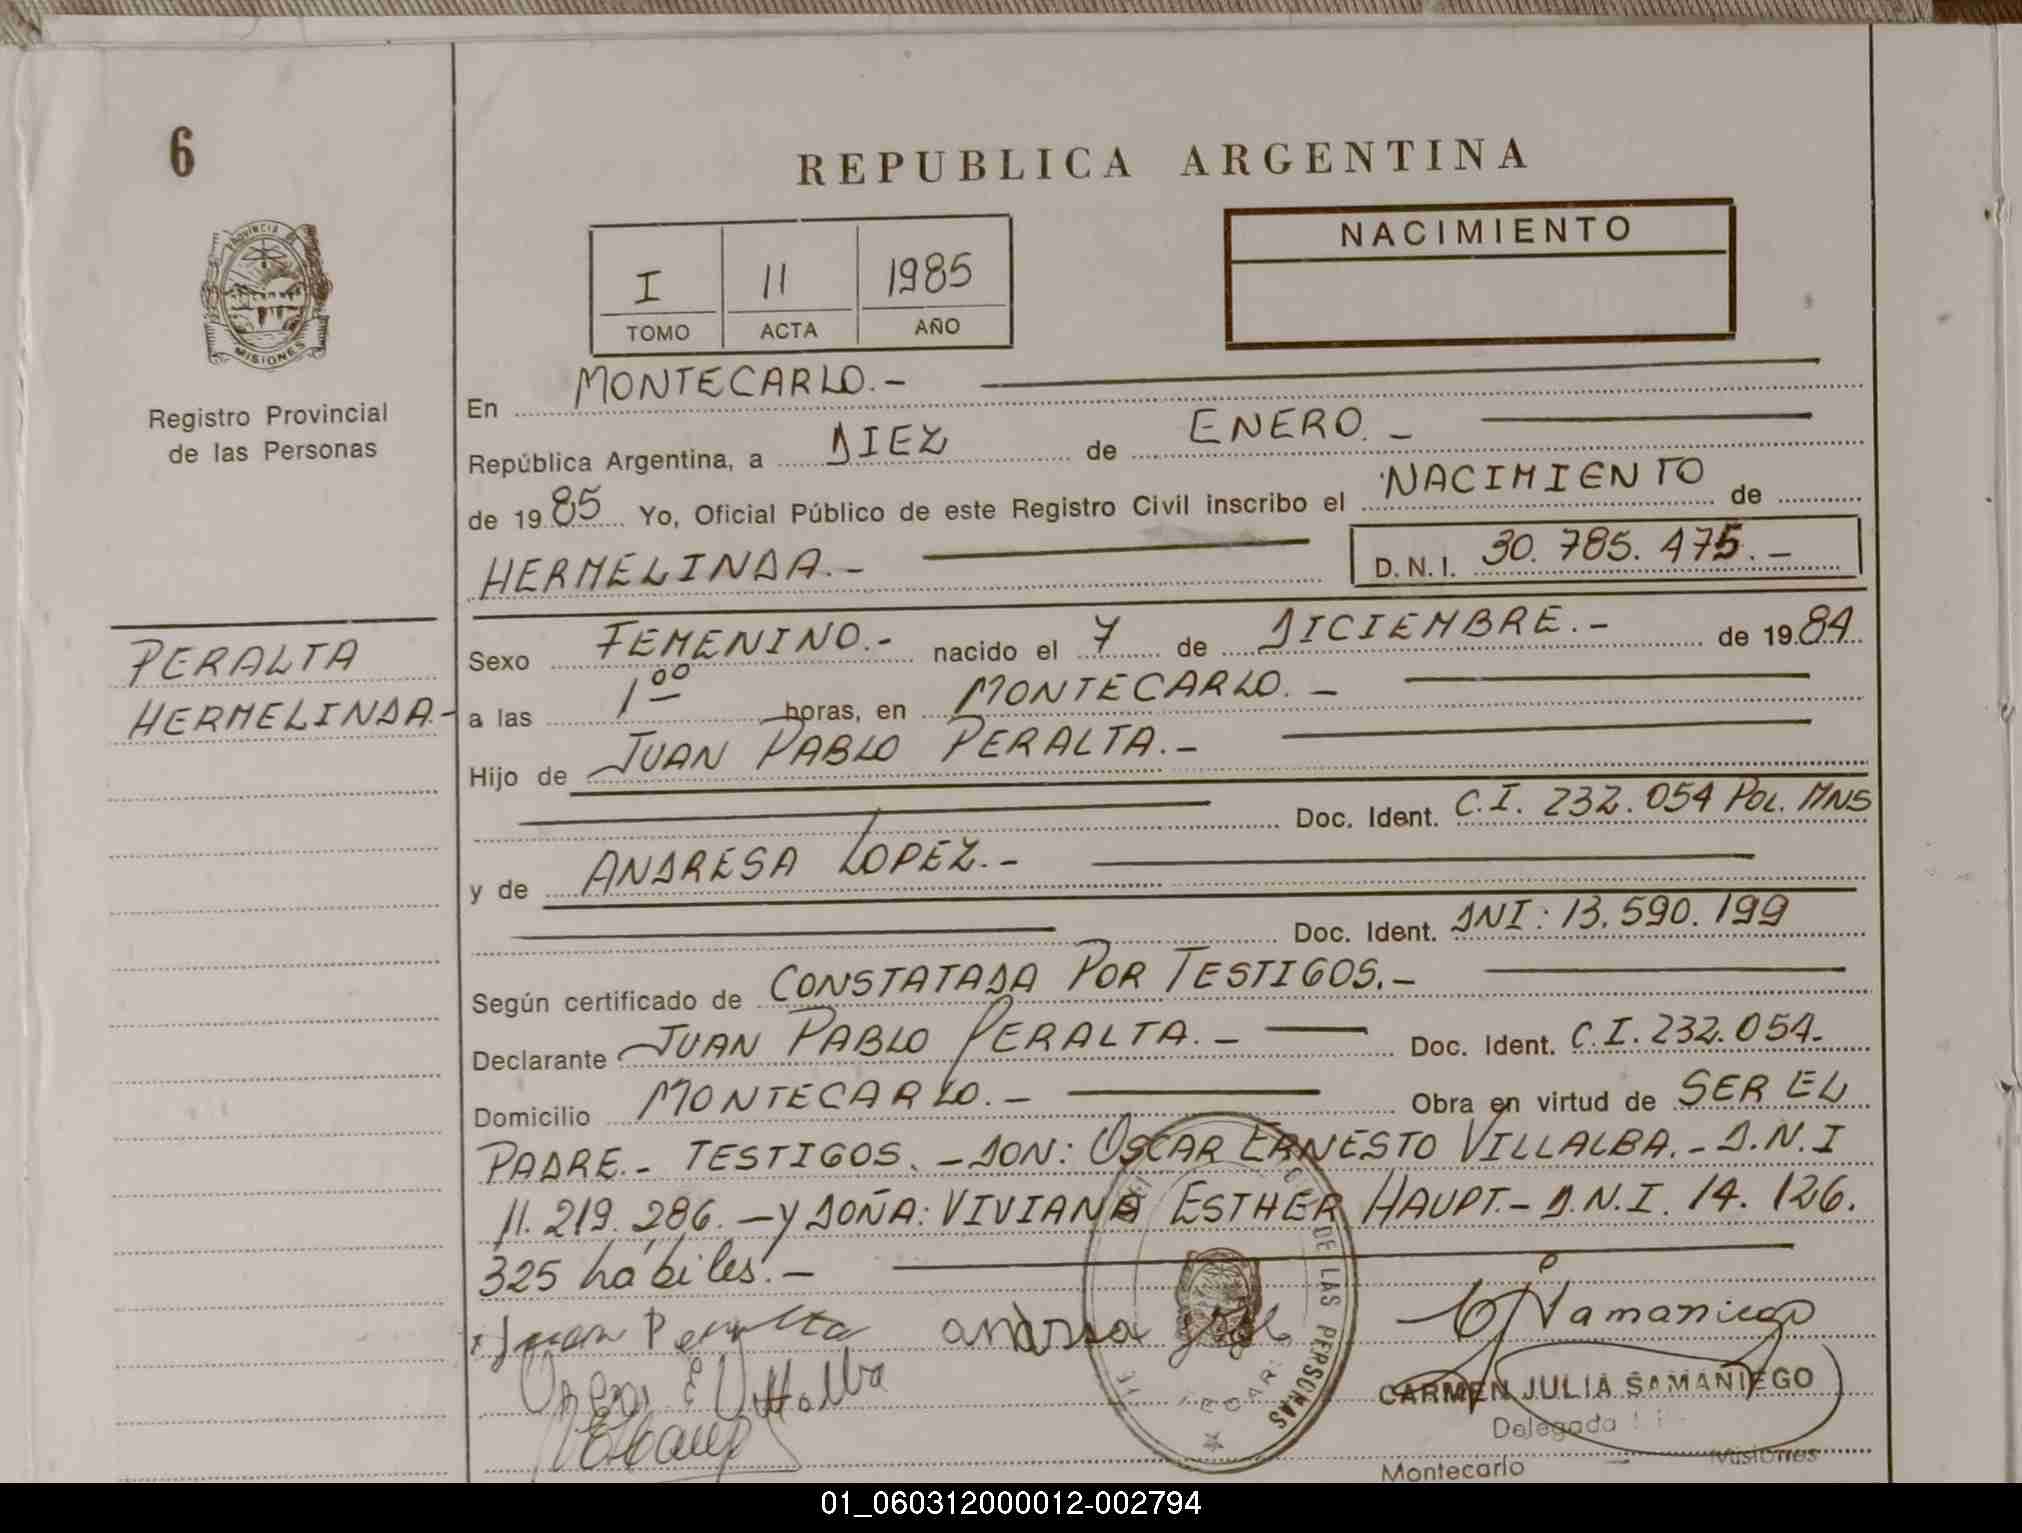 6
REPUBLICA ARGENTINA
PROVINCIA DE
MISIONES
Registro Provincial
de las Personas
I 11 1985
TOMO ACTA AÑO
NACIMIENTO
En MONTECARLO.-
República Argentina, a DIEZ de ENERO.-
de 1985 Yo, Oficial Público de este Registro Civil inscribo el NACIMIENTO de
HERMELINDA.- D.N.I. 30.785.475.-
PERALTA
HERMELINDA.-
Sexo FEMENINO.- nacido el 7 de DICIEMBRE.- de 1984
a las 1 00 horas, en MONTECARLO.-
Hijo de JUAN PABLO PERALTA.-
Doc. Ident. C.I. 232.054 POL. MNS
y de ANDRESA LOPEZ.-
Doc. Ident. DNI: 13.590.199
Según certificado de CONSTATADA POR TESTIGOS.-
Declarante JUAN PABLO PERALTA.- Doc. Ident. C.I. 232.054.
Domicilio MONTECARLO.- Obra en virtud de SER EL
PADRE.- TESTIGOS.- DON: OSCAR ERNESTO VILLALBA.- D.N.I
11.219.286.- Y DOÑA: VIVIANA ESTHER HAUPT.- D.N.I. 14.126.
325 hábiles.-
Juan Peralta andresa Samaniego
Oscar E Villalba
DE LAS PERSONAS
CARMEN JULIA SAMANIEGO
Delegada
Montecarlo Misiones
01_060312000012-002794